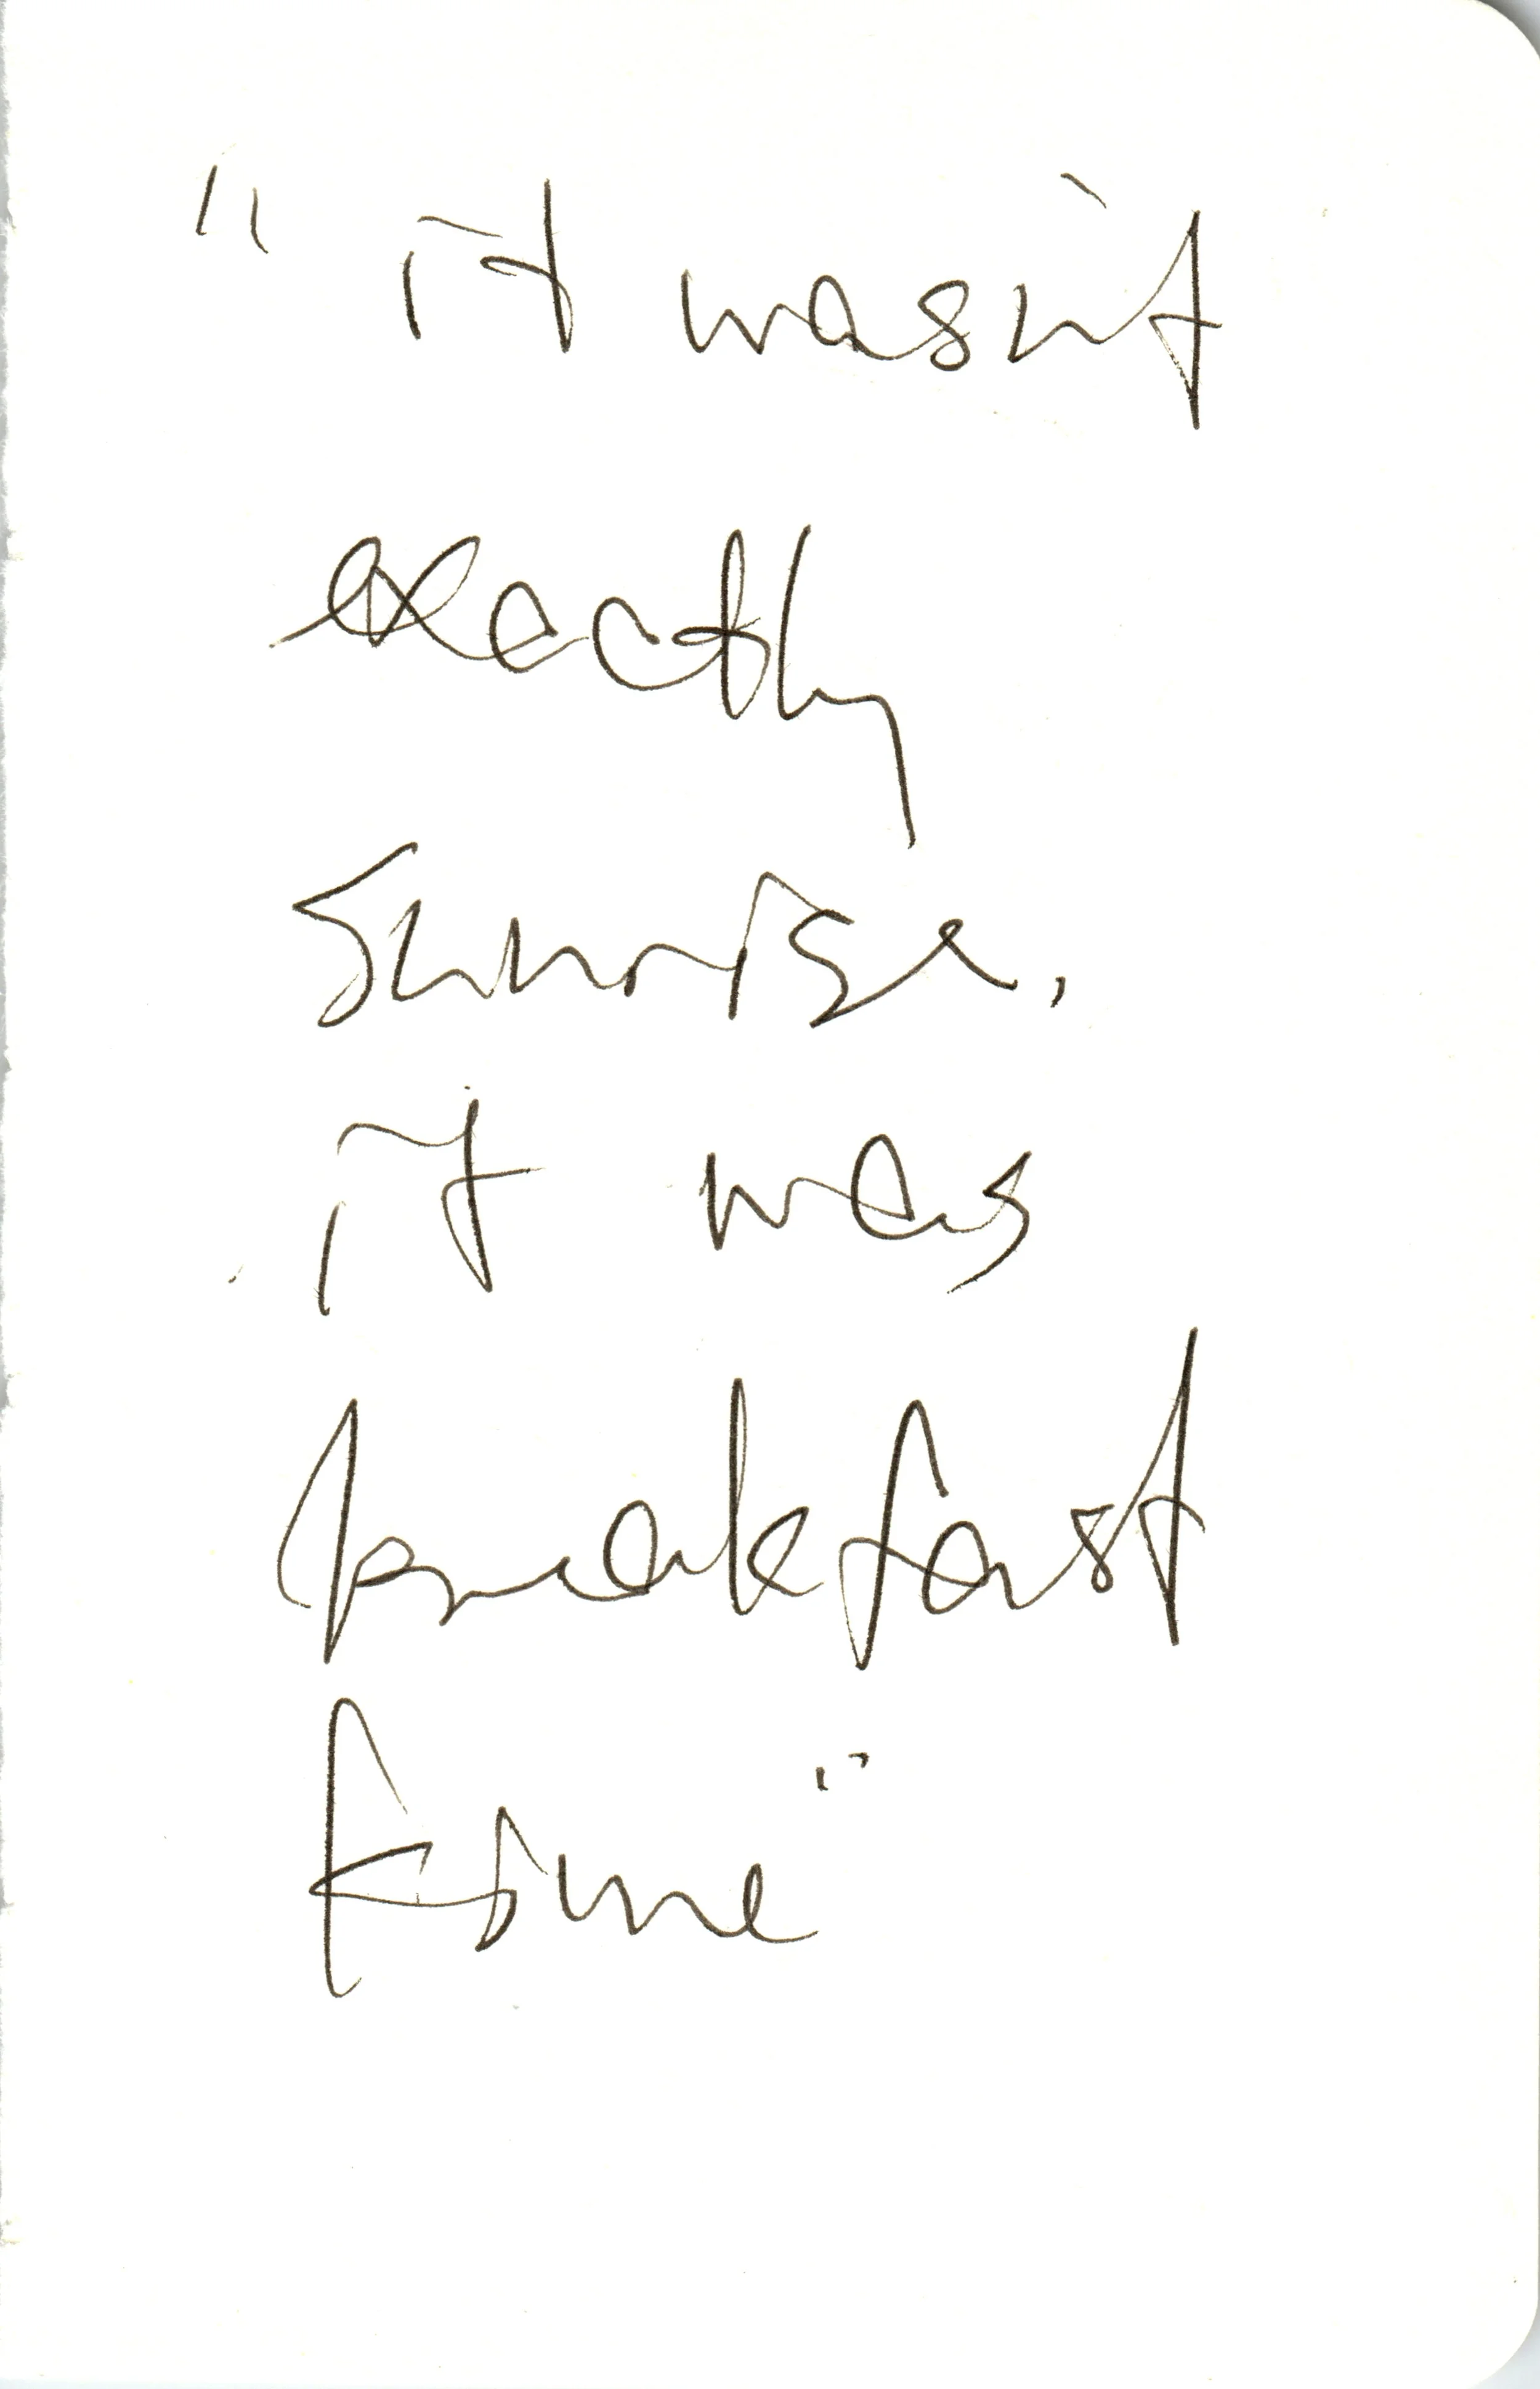 "it wasn't
exactly
sunrise,
it was
breakfast
time"